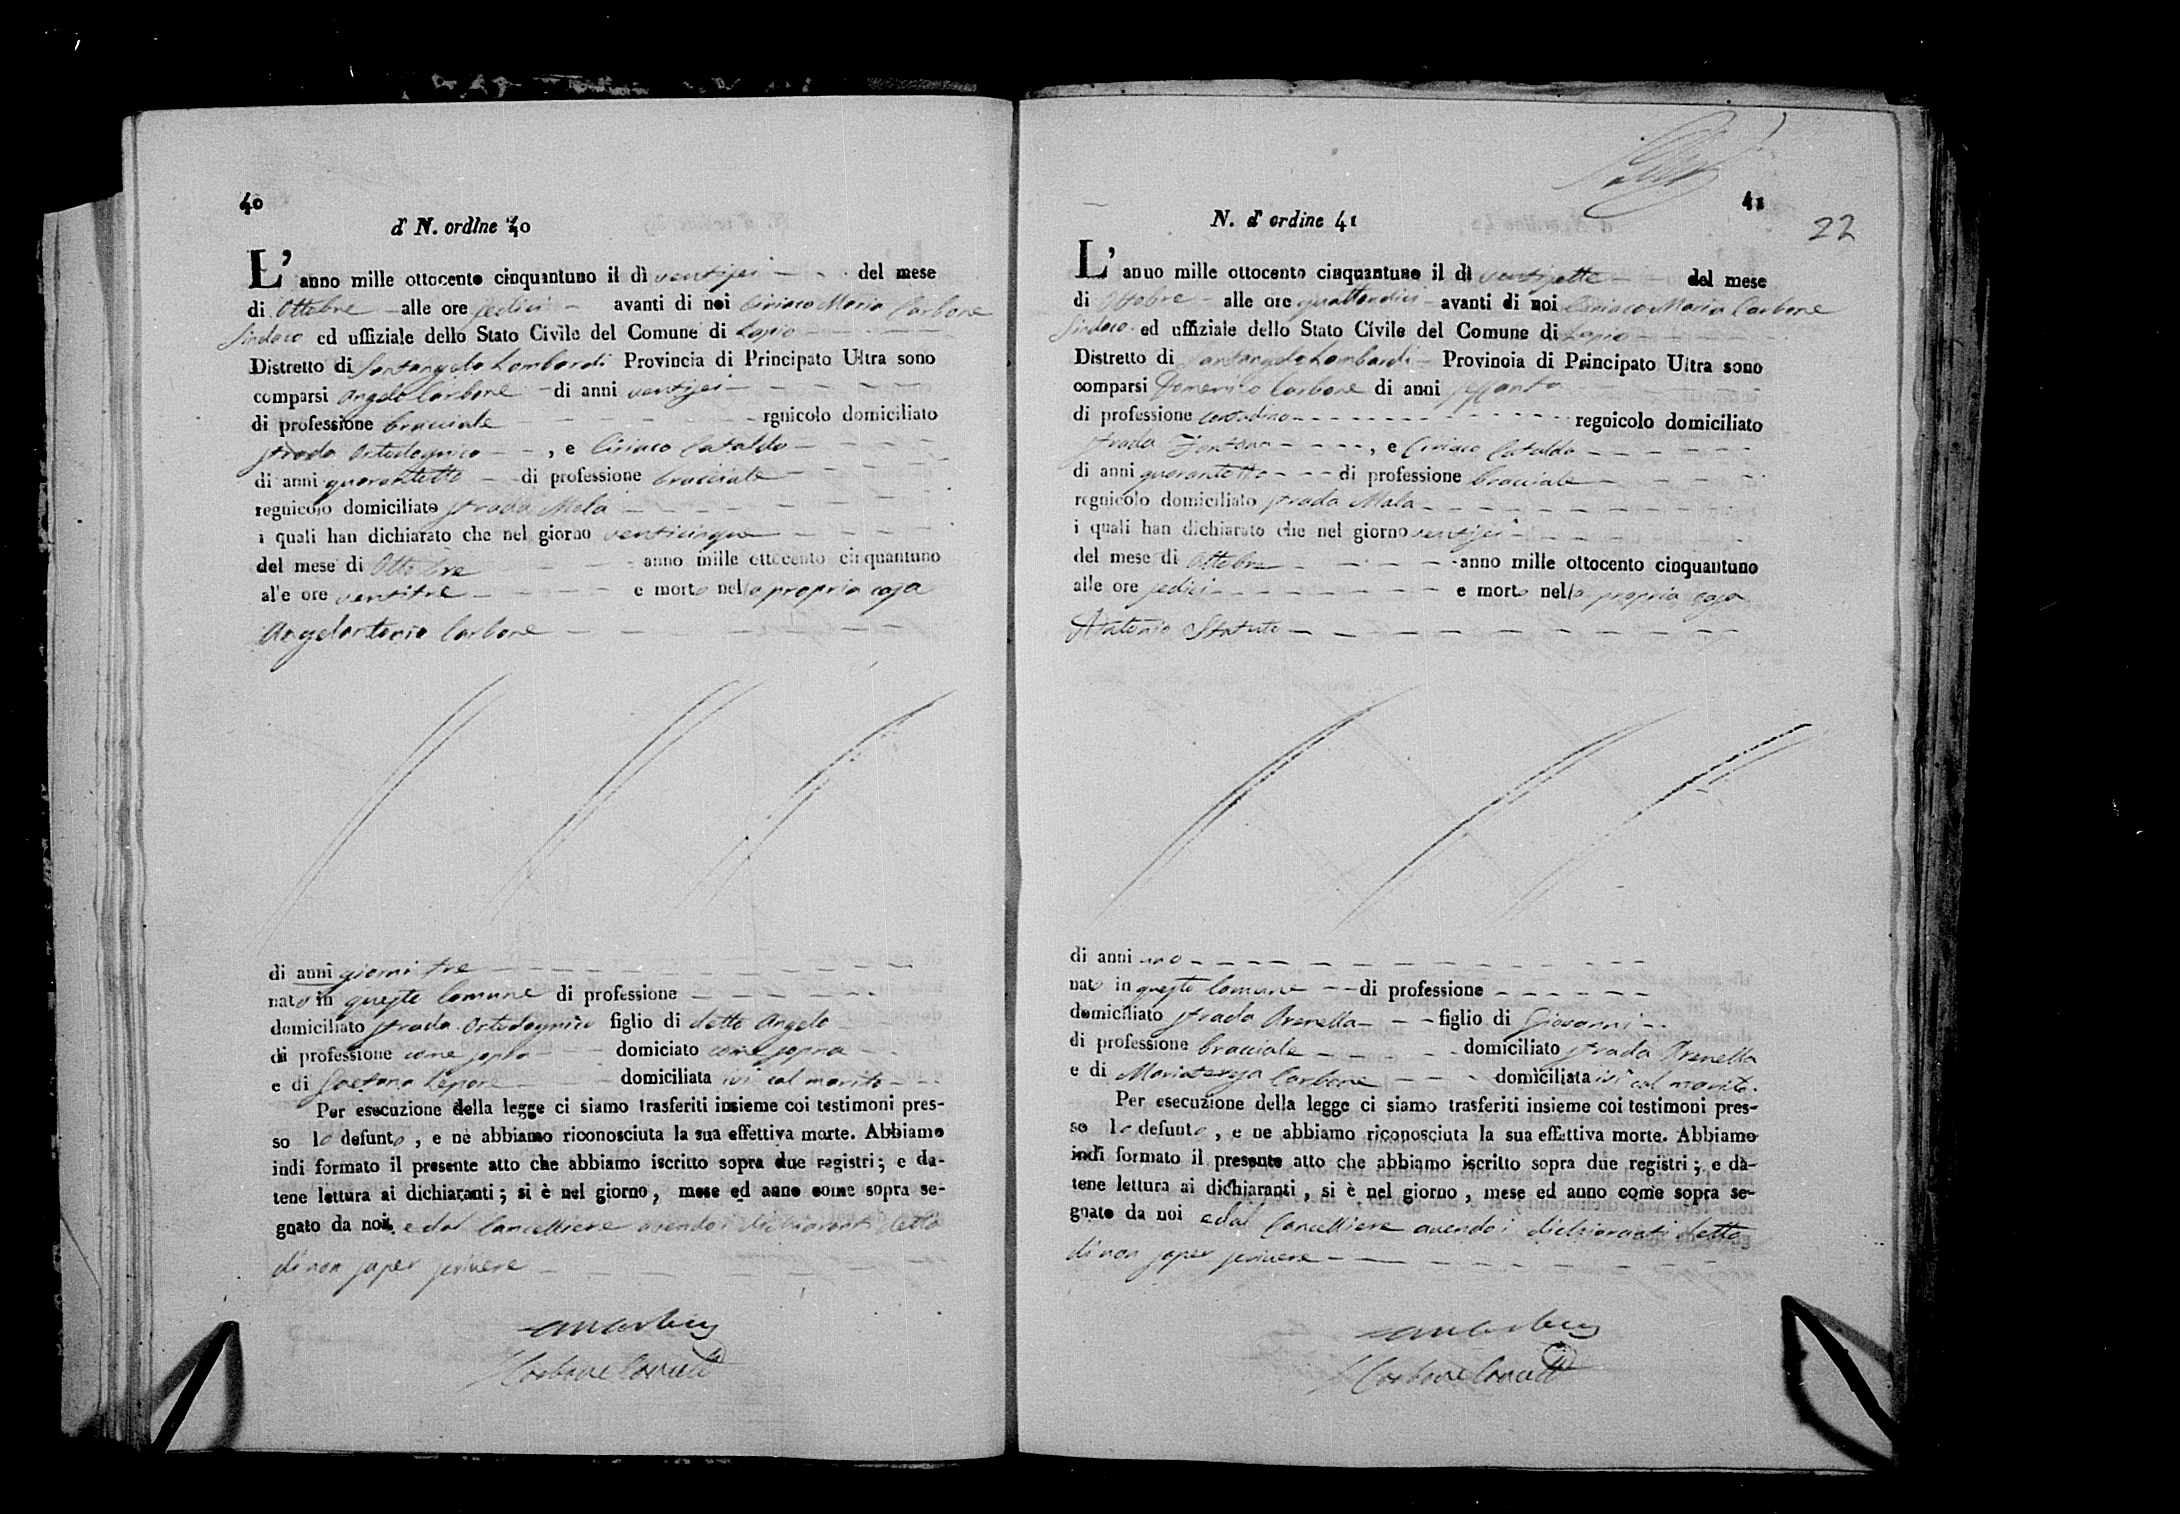 40
d' N. ordine 40
L' anno mille ottocento cinquantuno il dì ventisei del mese
di Ottobre alle ore sedici avanti di noi Ciriaco Maria Carbone
Sindaco ed uffiziale dello Stato Civile del Comune di Lapio
Distretto di Santangelo Lombardi Provincia di Principato Ultra sono
comparsi Angelo Carbone di anni ventisei
di professione bracciale rgnicolo domiciliato
strada , e Ciriaco Cataldo
di anni quarantotto di professione bracciale
regnicolo domiciliato strada Mala
i quali han dichiarato che nel giorno venticinque
del mese di Ottobre anno mille ottocento cinquantuno
alle ore ventitre e morto nella propria casa
Angelantonio Carbone
di anni giorni tre
nato in questo Comune di professione
domiciliato strada figlio di detto Angelo
di professione come sopra domiciato come sopra
e di Gaetana Lepore domiciliata ivi col marito
Per esecuzione della legge ci siamo trasferiti insieme coi testimoni pres-
so lo defunto , e ne abbiamo riconosciuta la sua effettiva morte. Abbiamo
indi formato il presente atto che abbiamo iscritto sopra due registri; e da-
tene lettura ai dichiaranti; si è nel giorno, mese ed anno come sopra se-
gnato da noi e dal Cancelliere avendo i dichiaranti detto
di non saper scrivere
Carbone Cancell
41
22
N. d' ordine 41
L' anuo mille ottocento cinquantuno il dì ventisette del mese
di Ottobre alle ore quattordici avanti di noi Ciriaco Maria Carbone
Sindaco ed uffiziale dello Stato Civile del Comune di Lapio
Distretto di Santangelo Lombardi Provincia di Principato Ultra sono
comparsi Domenico Carbone di anni sessanta
di professione contadino regnicolo domiciliato
strada Fontana , e Ciriaco Cataldo
di anni quarantotto di professione bracciale
regnicolo domiciliato strada Mala
i quali han dichiarato che nel giorno ventisei
del mese di Ottobre anno mille ottocento cinquantuno
alle ore sedici e morto nella propria casa
Antonio Statuto
di anni uno
nato in questo Comune di professione
domiciliato strada Arenella figlio di Giovanni
di professione bracciale domiciliato strada Arenella
e di Mariateresa Carbone domiciliata ivi col marito.
Per esecuzione della legge ci siamo trasferiti insieme coi testimoni pres-
so lo defunto , e ne abbiamo riconosciuta la sua effettiva morte. Abbiamo
indi formato il presente atto che abbiamo iscritto sopra due registri; e dà-
tene lettura ai dichiaranti, si è nel giorno, mese ed anno come sopra se-
gnato da noi e dal Cancelliere avendo i dichiaranti detto
di non saper scrivere
Carbone Cancell